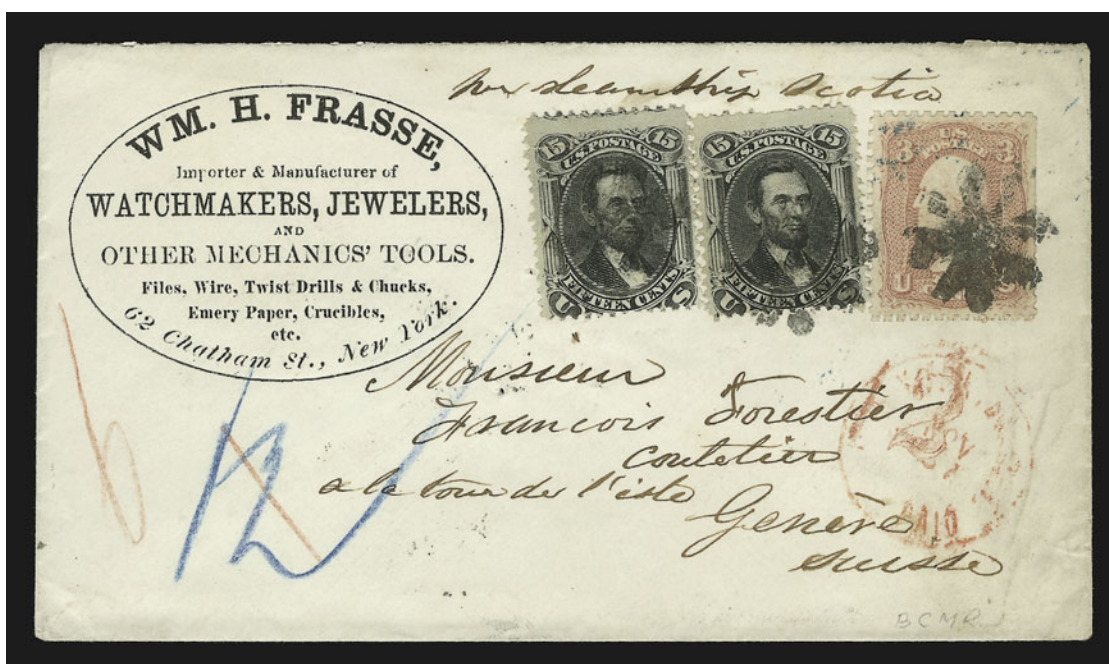 WM. H. FRASSE,
Importer & Manufacturer of
WATCHMAKERS, JEWELERS,
AND
OTHER MECHANICS' TOOLS.
Files, Wire, Twist Drills & Chucks,
Emery Paper, Crucibles,
etc.
62 Chatham St., New York.
per steam Ship Scotia
15 15
U.S. POSTAGE
FIFTEEN CENTS
U S
15 15
U.S. POSTAGE
FIFTEEN CENTS
U S
3 U.S. 3
POSTAGE
U S
Monsieur
Francois Forestier
coutelier
a la tour de l'isle
Genève
Suisse
PAID
6
12
BCMR